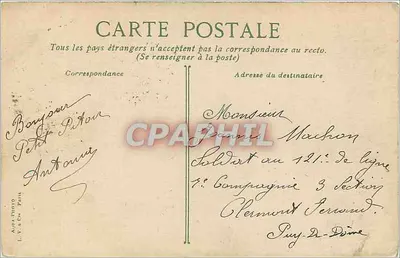 CARTE POSTALE
Tous les pays étrangers n'acceptent pas la correspondance au recto.
(Se renseigner à la poste)
Correspondance
Adresse du destinataire
Bonjour
Petit Pitou
Antonia
Monsieur
Machon
Soldat au 121e de ligne
1e Compagnie 3 Section
Clermont Ferrand
Puy-De-Dôme
CPAPHIL